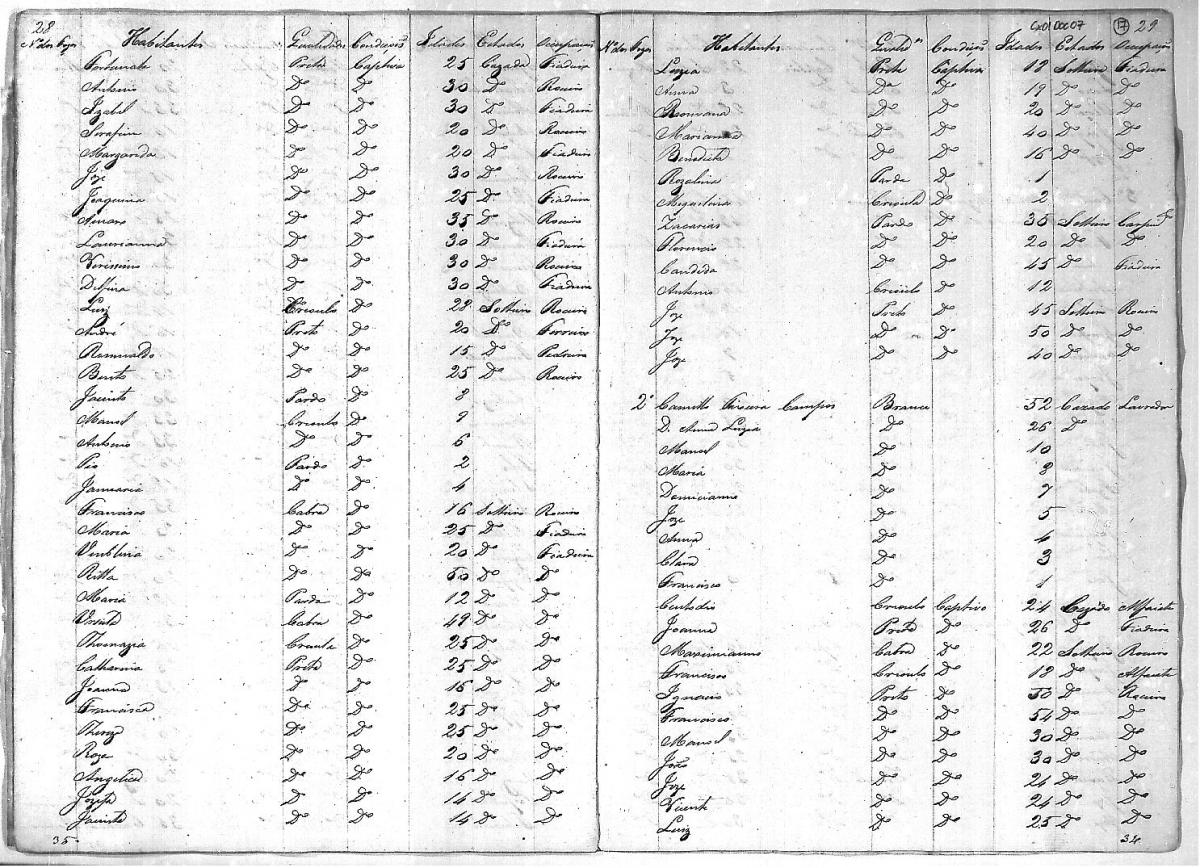 28
Nº dos Fogos Habitantes Qualidades Condições Idades Estados Occupações
Fortunata Preta Captiva 25 Cazada Fiadeira
Antonio Dº Dº 30 Dº Roceiro
Izabel Dº Dº 30 Dº Fiadeira
Serafim Dº Dº 20 Dº Roceiro
Margarida Dº Dº 20 Dº Fiadeira
Joze Dº Dº 30 Dº Roceiro
Joaquina Dº Dº 25 Dº Fiadeira
Amaro Dº Dº 35 Dº Roceiro
Laurianna Dº Dº 30 Dº Fiadeira
Verissimo Dº Dº 30 Dº Roceiro
Delfina Dº Dº 30 Dº Fiadeira
Luiz Crioulo Dº 28 Solteiro Roceiro
André Preto Dº 20 Dº Ferreiro
Romualdo Dº Dº 15 Dº Pedreiro
Bento Dº Dº 25 Dº Roceiro
Jacinto Pardo Dº 8
Manoel Crioulo Dº 9
Antonio Dº Dº 6
Pio Pardo Dº 2
Januaria Dº Dº 4
Francisco Cabra Dº 16 Solteiro Roceiro
Maria Dº Dº 25 Dº Fiadeira
Umblina Dº Dº 20 Dº Fiadeira
Ritta Dº Dº 50 Dº Dº
Maria Parda Dº 12 Dº Dº
Cabra Dº 49 Dº Dº
Thomazia Crioula Dº 25 Dº Dº
Catharina Preta Dº 25 Dº Dº
Joanna Dº Dº 16 Dº Dº
Francisca Dº Dº 25 Dº Dº
Thereza Dº Dº 25 Dº Dº
Roza Dº Dº 20 Dº Dº
Angelica Dº Dº 16 Dº Dº
Jozefa Dº Dº 14 Dº Dº
Jacinta Dº Dº 14 Dº Dº
35
CX01 DOC07 17 29
Nº dos Fogos Habitantes Qualid.es Condições Idades Estados Occupações
Luzia Preta Captiva 18 Solteira Fiadeira
Anna Dª Dº 19 Dº Dº
Romana Dº Dº 20 Dº Dº
Marianna Dº Dº 40 Dº Dº
Benedicta Dº Dº 16 Dº Dº
Rozalina Parda Dº 1
Miguelina Crioula Dº 2
Zacarias Pardo Dº 30 Solteiro
Florencio Dº Dº 20 Dº Dº
Candida Dº Dº 45 Dº Fiadeira
Antonio Crioulo Dº 12
Joze Preto Dº 45 Solteiro Roceiro
Joze Dº Dº 50 Dº Dº
Joze Dº Dº 40 Dº Dº
2º Camillo Campos Branco 52 Cazado Lavrador
D. Anna Luzia Dº 26 Dº
Manoel Dº 10
Maria Dº 8
Domicianno Dº 7
Joze Dº 5
Anna Dº 4
Clara Dº 3
Francisco Dº 1
Custodio Crioulo Captivo 24 Cazado Alfaiate
Joanna Preta Dº 26 Dº Fiadeira
Maximianno Cabra Dº 22 Solteiro Roceiro
Francisco Crioulo Dº 18 Dº Alfaiate
Ignacio Preto Dº 50 Dº Roceiro
Francisco Dº Dº 54 Dº Dº
Manoel Dº Dº 30 Dº Dº
João Dº Dº 30 Dº Dº
Joze Dº Dº 24 Dº Dº
Vicente Dº Dº 24 Dº Dº
Luiz Dº Dº 25 Dº Dº
34